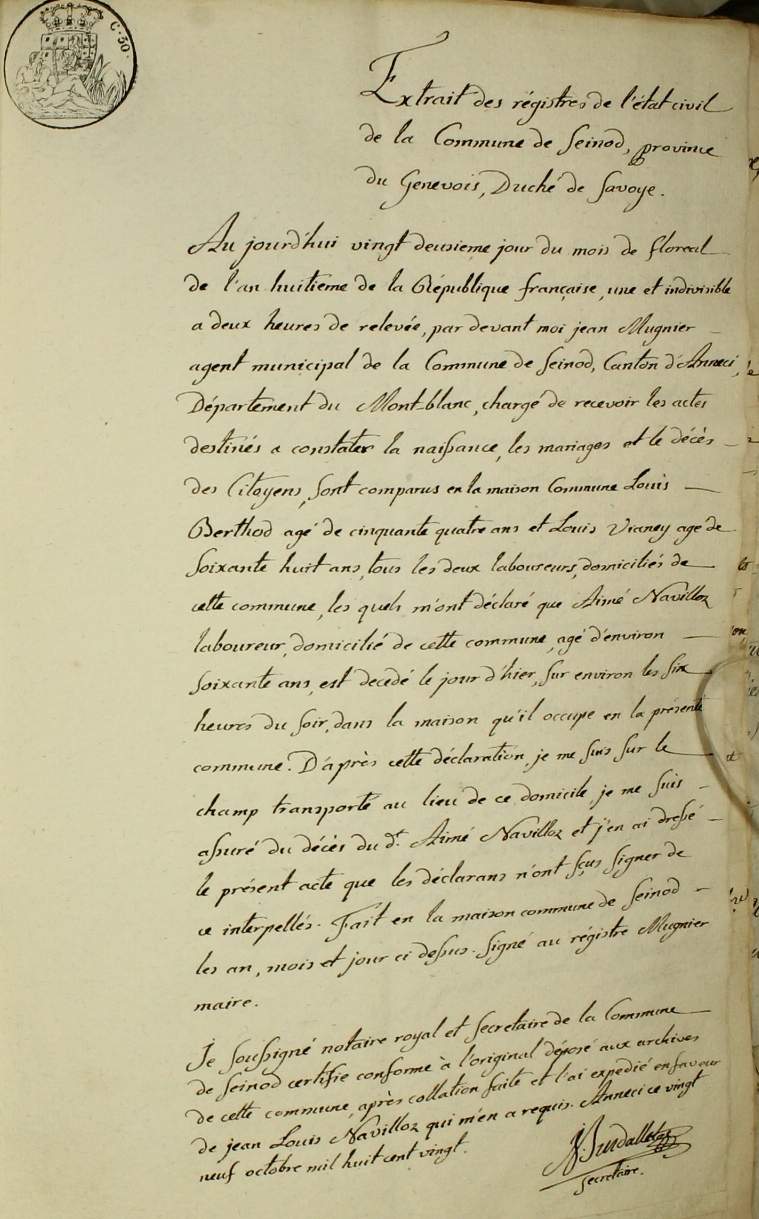 C. 30.
Extrait des régistres de l'état civil
de la Commune de Seinod, province
du Genevois, Duché de Savoye.
Au jourd'hui vingt deuxieme jour du mois de floreal
de l'an huitieme de la République française, une et indivisible
a deux heures de relevée, par devant moi jean Mugnier
agent municipal de la Commune de Seinod, Canton d'Anneci,
Département du Mont-blanc, chargé de recevoir les actes
destinés a constater la naissance, les mariages et le décès
des Citoyens, sont comparus en la maison Commune Louis
Berthod agé de cinquante quatre ans et Louis Vianey agé de
Soixante huit ans, tous les deux laboureurs, domiciliés de
cette commune, les quels m'ont déclaré que Aimé Navilloz
laboureur, domicilié de cette commune, agé d'environ
soixante ans, est decedé le jour d'hier, sur environ les six
heures du soir, dans la maison qu'il occupe en la présente
commune. D'après cette déclaration, je me suis sur le
champ transporté au lieu de ce domicile, je me suis
assuré du décès du dt. Aimé Navilloz et j'en ai dressé
le présent acte que les déclarans n'ont sçus signer de
ce interpellés. Fait en la maison commune de Seinod
les an, mois et jour ci dessus. Signé au régistre Mugnier
maire.
Je soussigné notaire royal et secretaire de la Commune
de Seinod certifie conforme à l'original déposé aux archives
de cette commune, après collation faite et l'ai expedié en faveur
de jean Louis Navilloz qui m'en a requis. Anneci ce vingt
neuf octobre mil huit cent vingt.
secretaire.